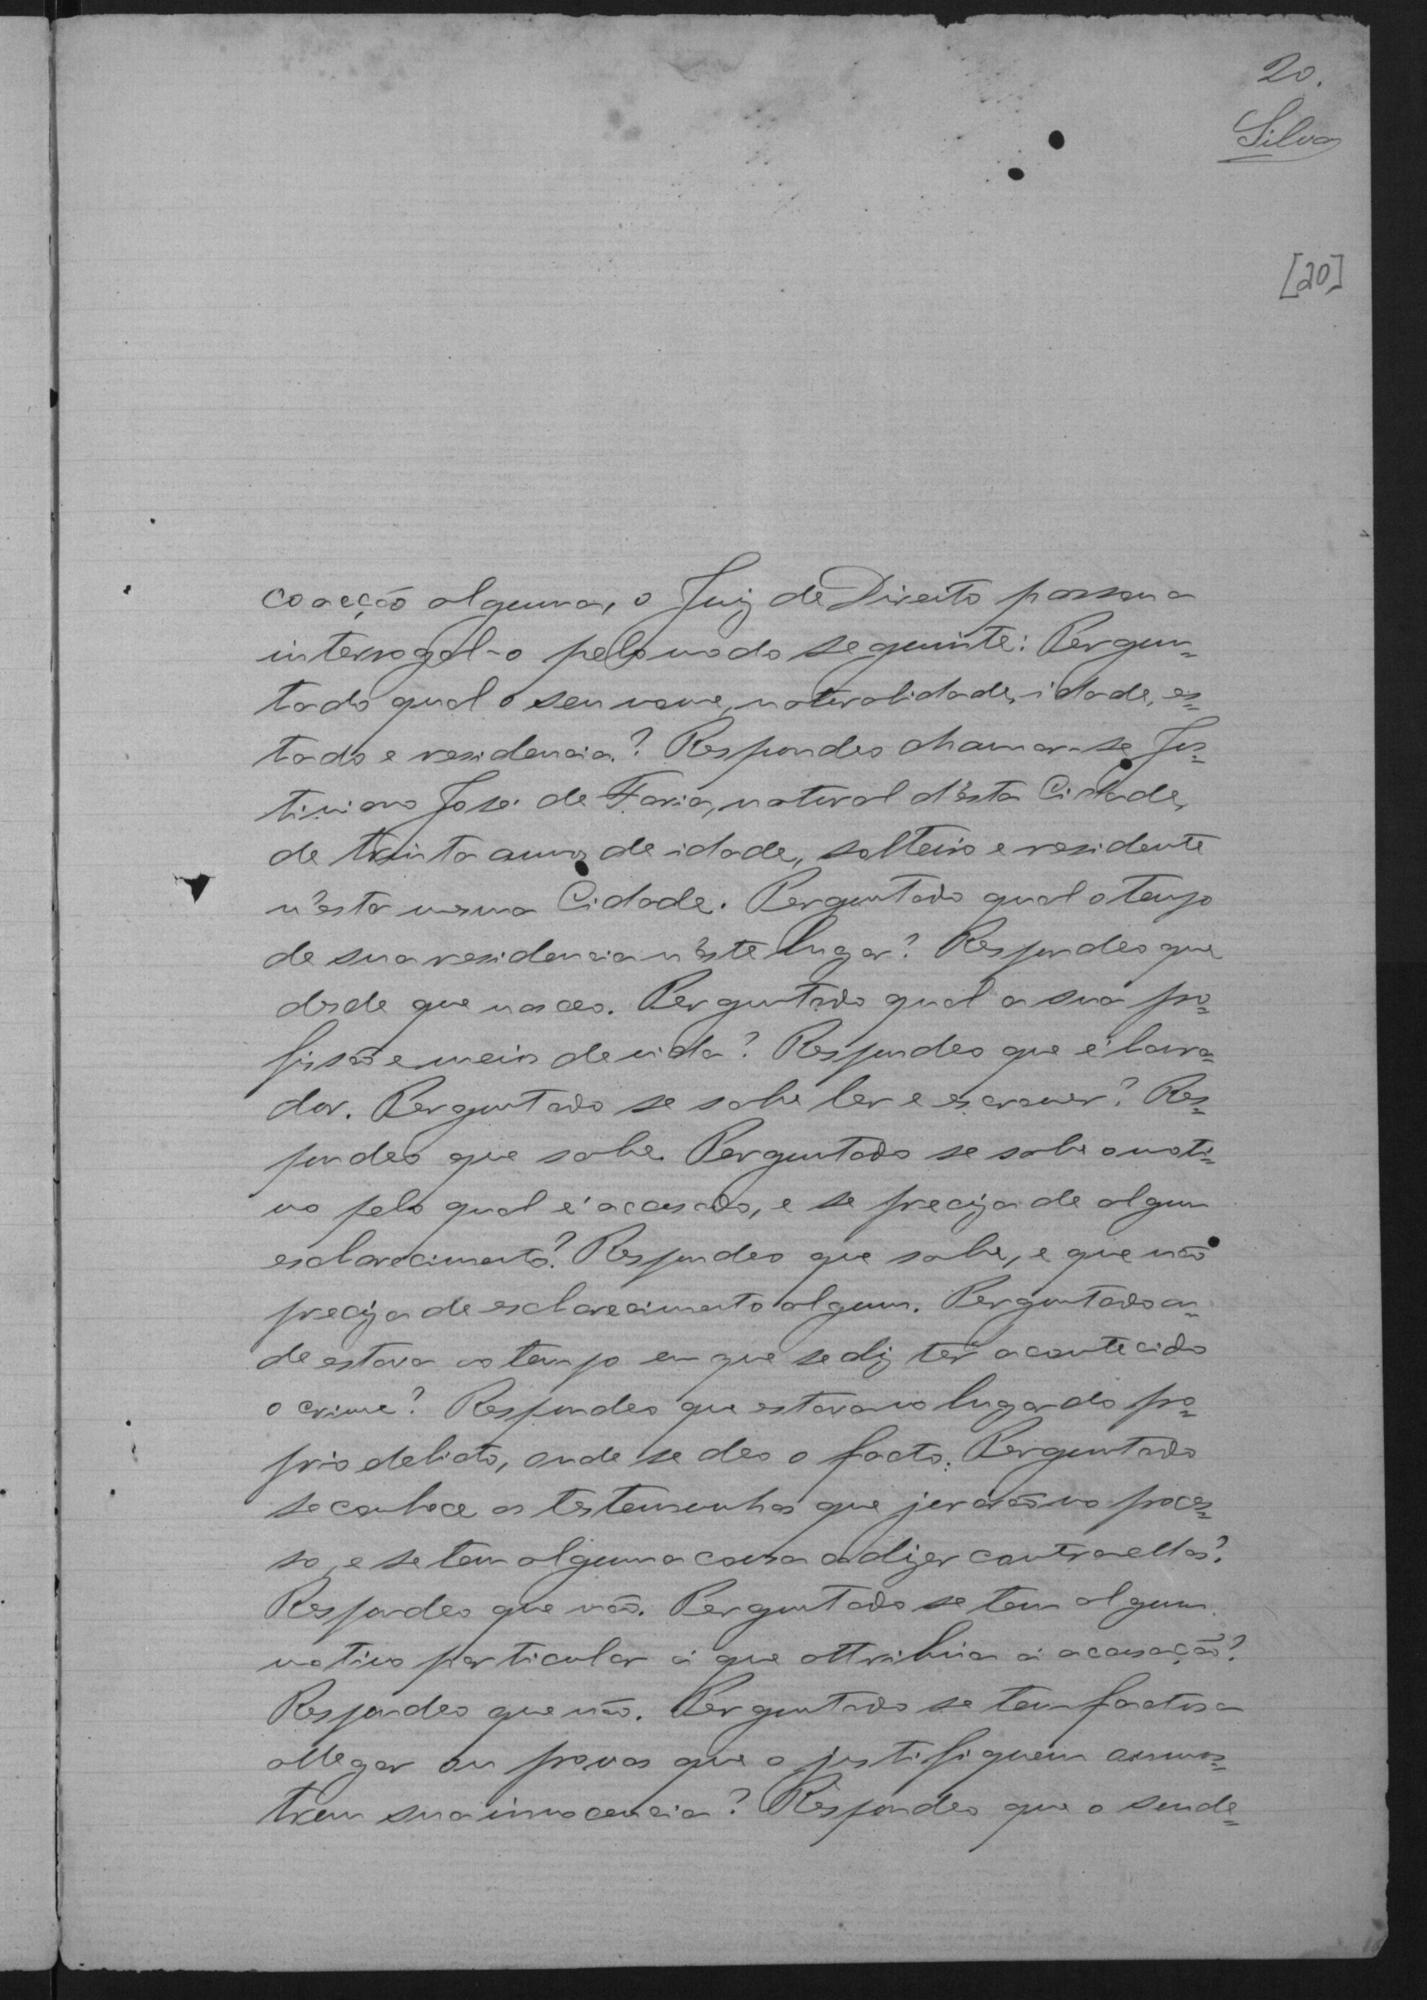 20.
Silva
[20]
coacção alguma, o Juiz de Direito passou a
interrogal-o pelo modo seguinte: Pergun=
tado qual o seu nome, naturalidade, idade, es=
tado e residencia? Respondeo chamar-se Jus=
tiniano José de Faria, natural d'esta Cidade,
de trinta annos de idade, solteiro e residente
n'esta mesma Cidade. Perguntado qual o tempo
de sua residencia n'este lugar? Respondeo que
desde que nasceo. Perguntado qual a sua pro=
fissão e meios de vida? Respondeo que é lavra=
dor. Perguntado se sabe ler e escrever? Res=
pondeo que sabe. Perguntado se sabe o moti=
vo pelo qual é accusado, e se preciza de algum
esclarecimento? Respondeo que sabe, e que não
preciza de esclarecimento algum. Perguntado on=
de estava ao tempo em que se diz ter acontecido
o crime? Respondeo que estava no lugar do pro=
prio delicto, onde se deo o facto. Perguntado
se conhece as testemunhas que jurarão no proces=
so, e se tem alguma cousa a dizer contra ellas?
Respondeo que não. Perguntado se tem algum
motivo particular á que attribua á acusação?
Respondeo que não. Perguntado se tem factos a
allegar ou provas que o justifiquem ou mos=
trem sua innocencia? Respondeo que o seu de=